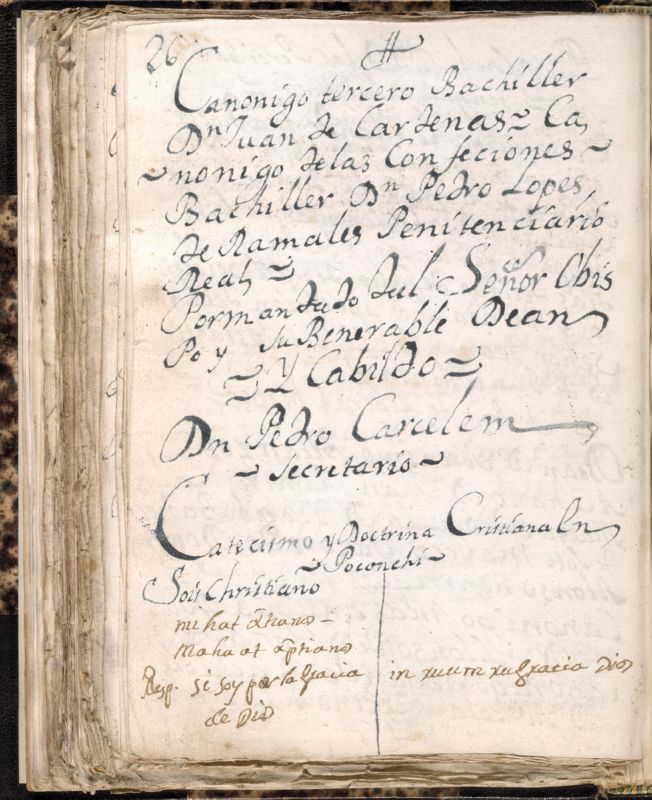 26
Canonigo tercero Bachiller
Dn Juan de Cardenas~ Ca,
~nonigo de las Confeciones~
Bachiller Dn Pedro Lopes,
de Ramales Penitenciario
Real, ~
Por mandado del Señor Obis
Po y su Benerable Dean
~ Y Cabildo ~
Dn Pedro Carcelem
~ Secretario ~
Catecismo y Doctrina Cristiana En
~ Poconchi ~
Sois Christiano
mi hat
Maha at
Resp. si soy por la gracia in ruum rugracia Dios
de Dios